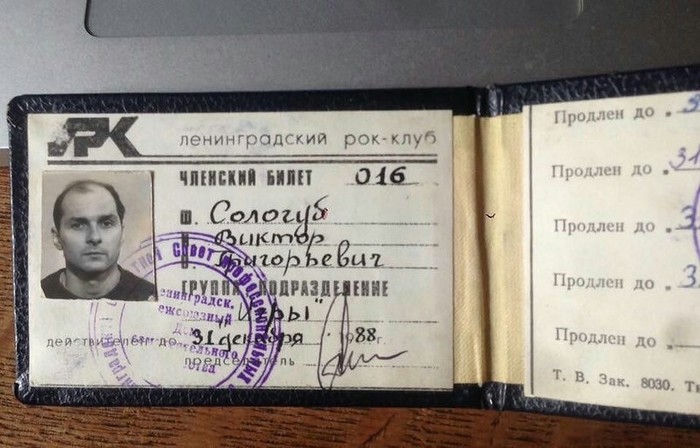 ЛРК ленинградский рок-клуб
ЧЛЕНСКИЙ БИЛЕТ 016
Ф. Сологуб
И. Виктор
О. Григорьевич
ГРУППА ПОДРАЗДЕЛЕНИЕ
"Игры"
действителен до 31 декабря 1988 г.
председатель
Ленинградск.
межсоюзный
Дом
самодеятельного
Продлен до
Продлен до 31
Продлен до 3
Продлен до 3
Продлен до
Т. В. Зак. 8030.